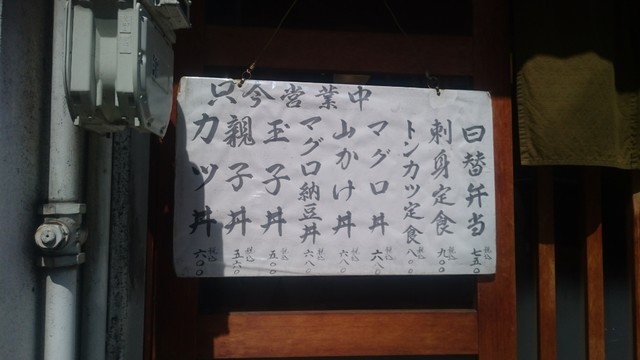 只今営業中
日替弁当 税込 七五〇
刺身定食 税込 九〇〇
トンカツ定食 税込 八〇〇
マグロ丼 税込 六八〇
山かけ丼 税込 六八〇
マグロ納豆丼 税込 六八〇
玉子丼 税込 五〇〇
親子丼 税込 五六〇
カツ丼 税込 六〇〇